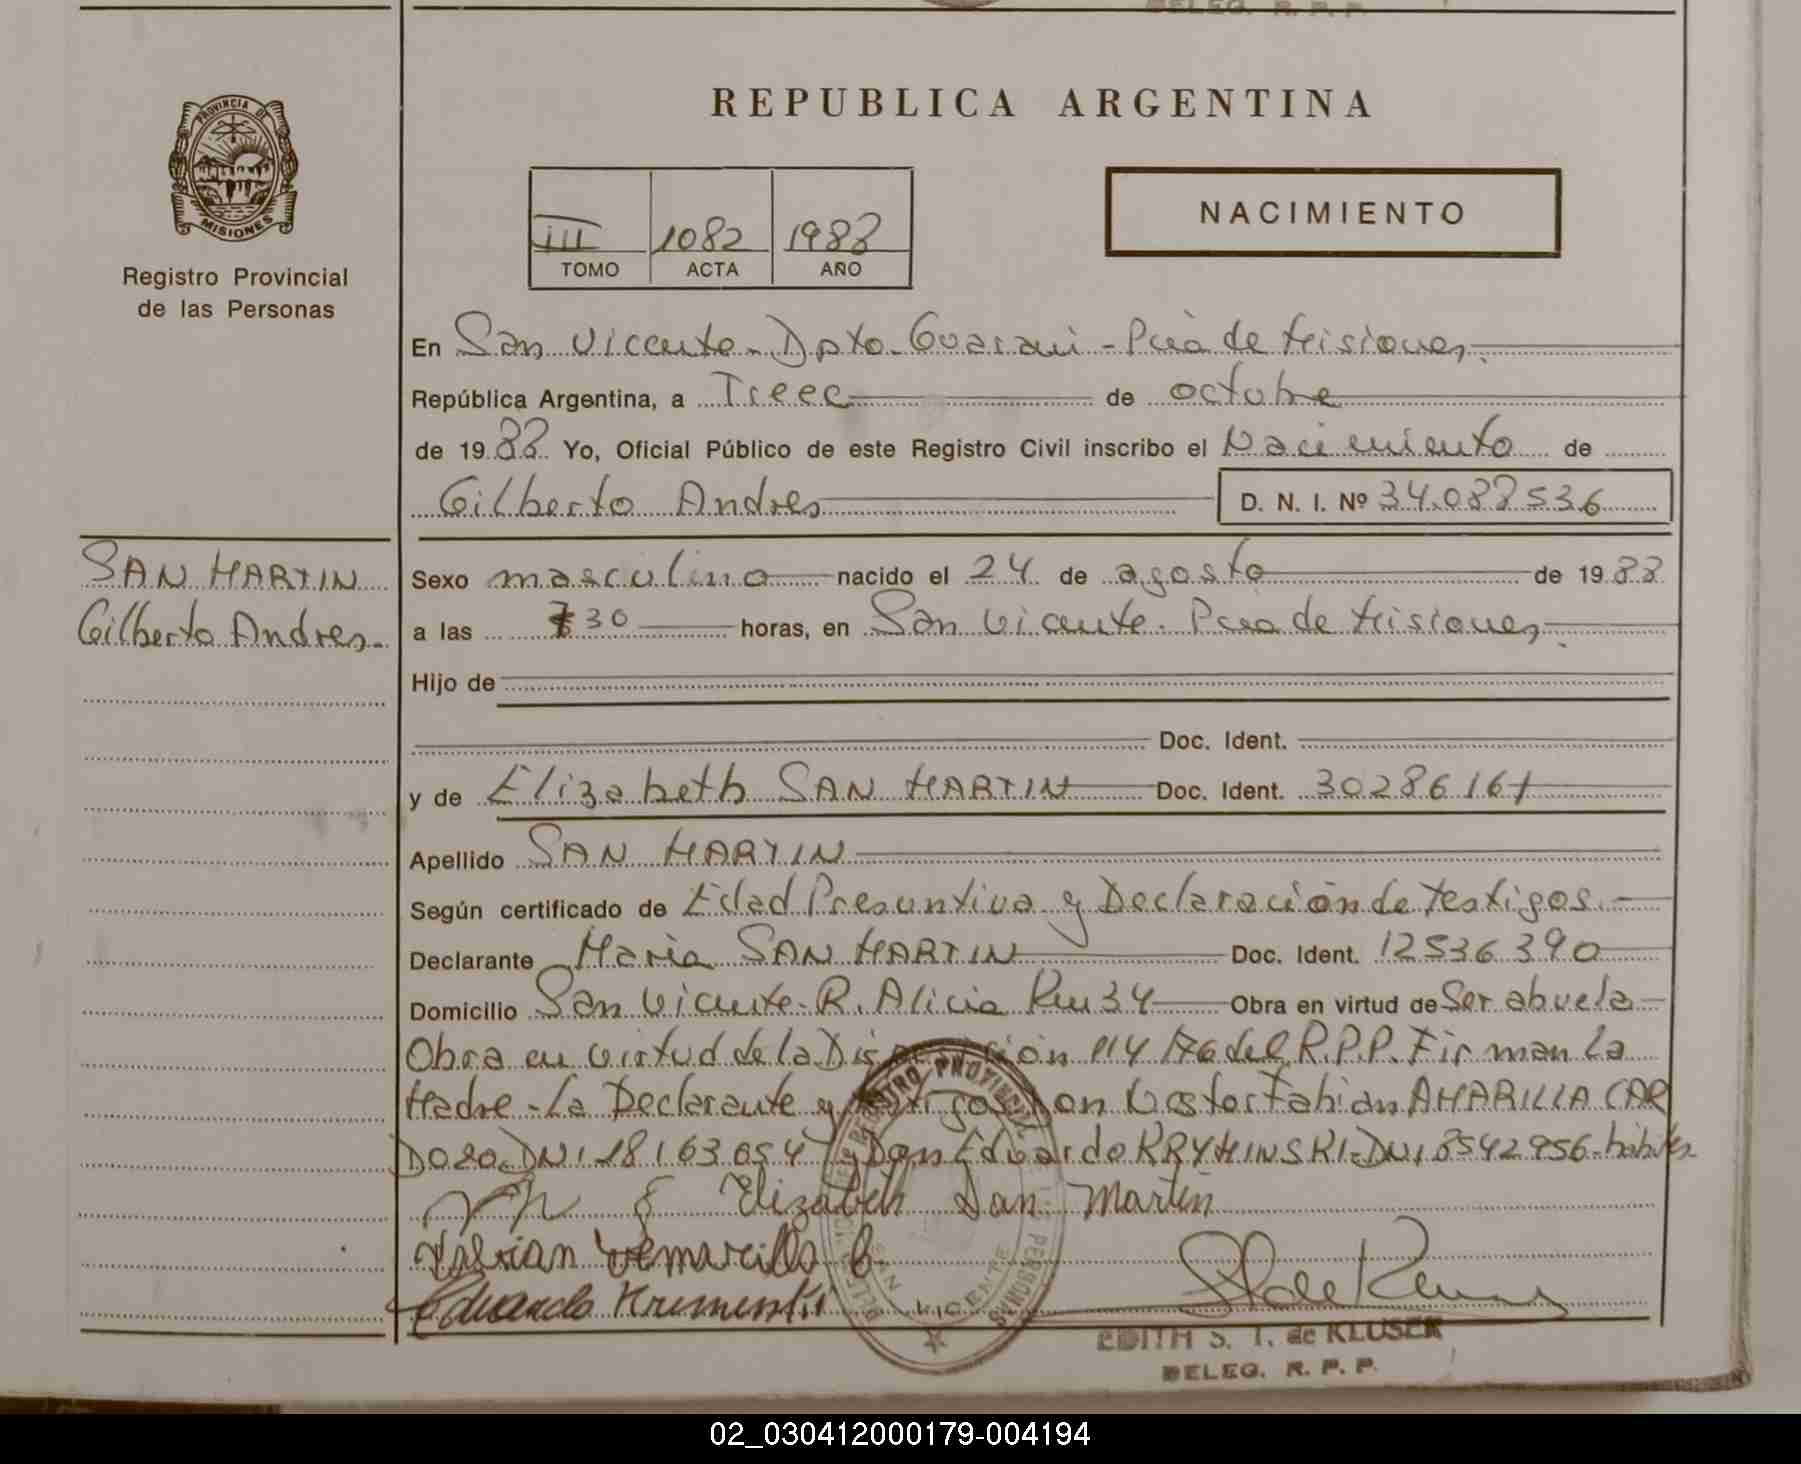 DELEG. R. P. P.
PROVINCIA DE
MISIONES
Registro Provincial
de las Personas
REPUBLICA ARGENTINA
III 1082 1988
TOMO ACTA AÑO
NACIMIENTO
En San Vicente - Dpto. Guarani - Pcia de Misiones.
República Argentina, a Trece de octubre
de 1988 Yo, Oficial Público de este Registro Civil inscribo el Nacimiento de
Gilberto Andres D. N. I. Nº 34.088536
SAN MARTIN
Gilberto Andres.
Sexo masculino nacido el 24 de agosto de 1988
a las 7 30 horas, en San Vicente. Pcia de Misiones.
Hijo de
Doc. Ident.
y de Elizabeth SAN MARTIN Doc. Ident. 30286161
Apellido SAN MARTIN
Según certificado de Edad Presuntiva y Declaración de testigos.
Declarante Maria SAN MARTIN Doc. Ident. 12536390
Domicilio San Vicente - R. Alicia Km 34 Obra en virtud de Ser abuela
Obra en virtud de la Disposición 114/76 del R.P.P. Firman la
Madre - La Declarante y testigos Don Fabian AMARILLA CAR
DOZO. DNI 18163054 y Don Eduardo KRYMINSKI - DNI 8542956 - hábiles
Elizabeth San Martin
Fabian
Eduardo
REGISTRO PROVINCIAL
PERSONAS
SAN VICENTE
EDITH S. T. de KLUSER
DELEG. R. P. P.
02_030412000179-004194